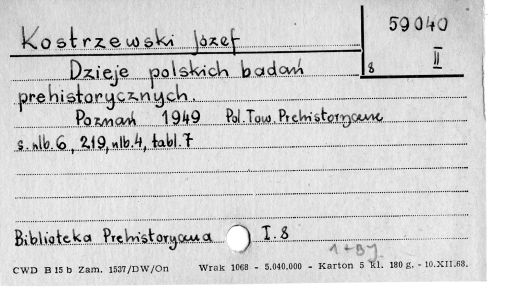 59040
Kostrzewski Józef
II
8
Dzieje polskich badań
prehistorycznych.
Poznań 1949 Pol. Tow. Prehistoryczne
s. nlb. 6, 219, nlb. 4, tabl. 7
Biblioteka Prehistoryczna I. 8
1 + By
CWD B 15 b Zam. 1537/DW/On Wrak 1068 - 5,040.000 - Karton 5 kl. 180 g. - 10.XII.68.